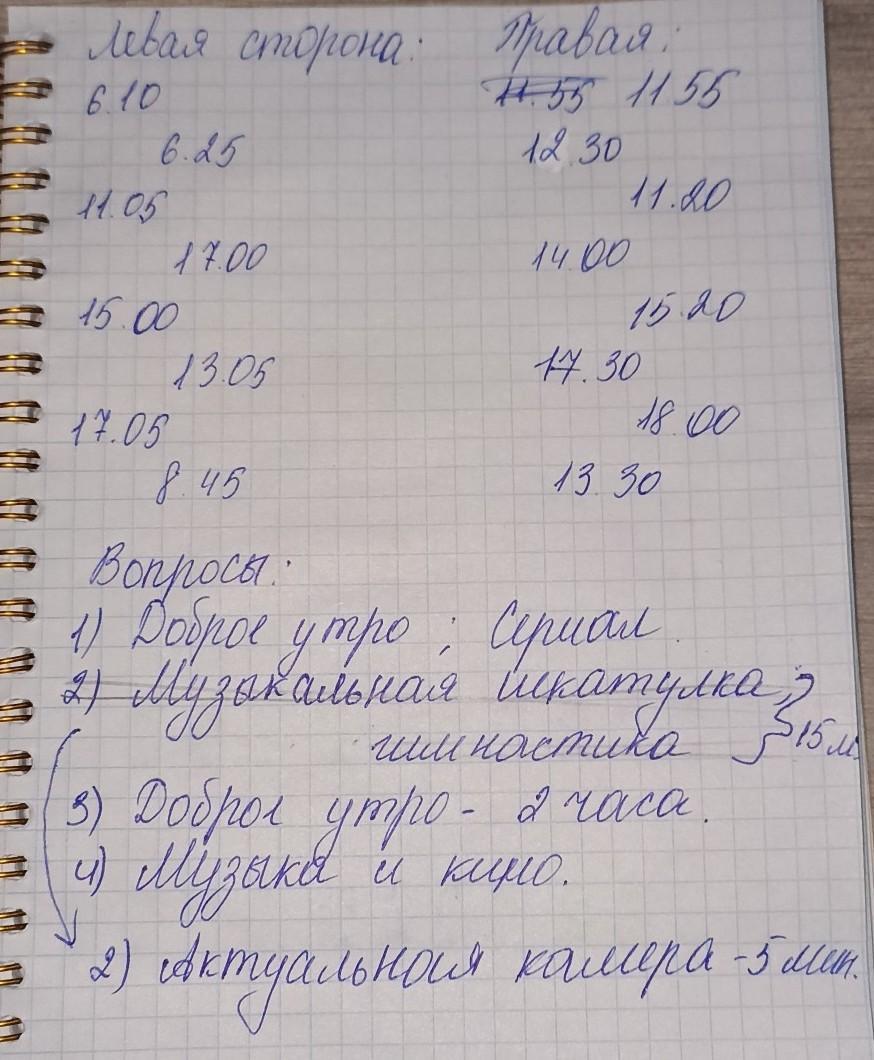 Левая сторона: Правая:
6.10 11.55 11 55
6.25 12.30
11.05 11.20
17.00 14 00
15.00 15.20
13.05 17.30
17.05 18.00
8.45 13.30
Вопросы:
1) Доброе утро ; Сериал.
2) Музыкальная шкатулка,
гимнастика } 15 м.
3) Доброе утро - 2 часа.
4) Музыка и кино.
2) Актуальная камера - 5 мин.